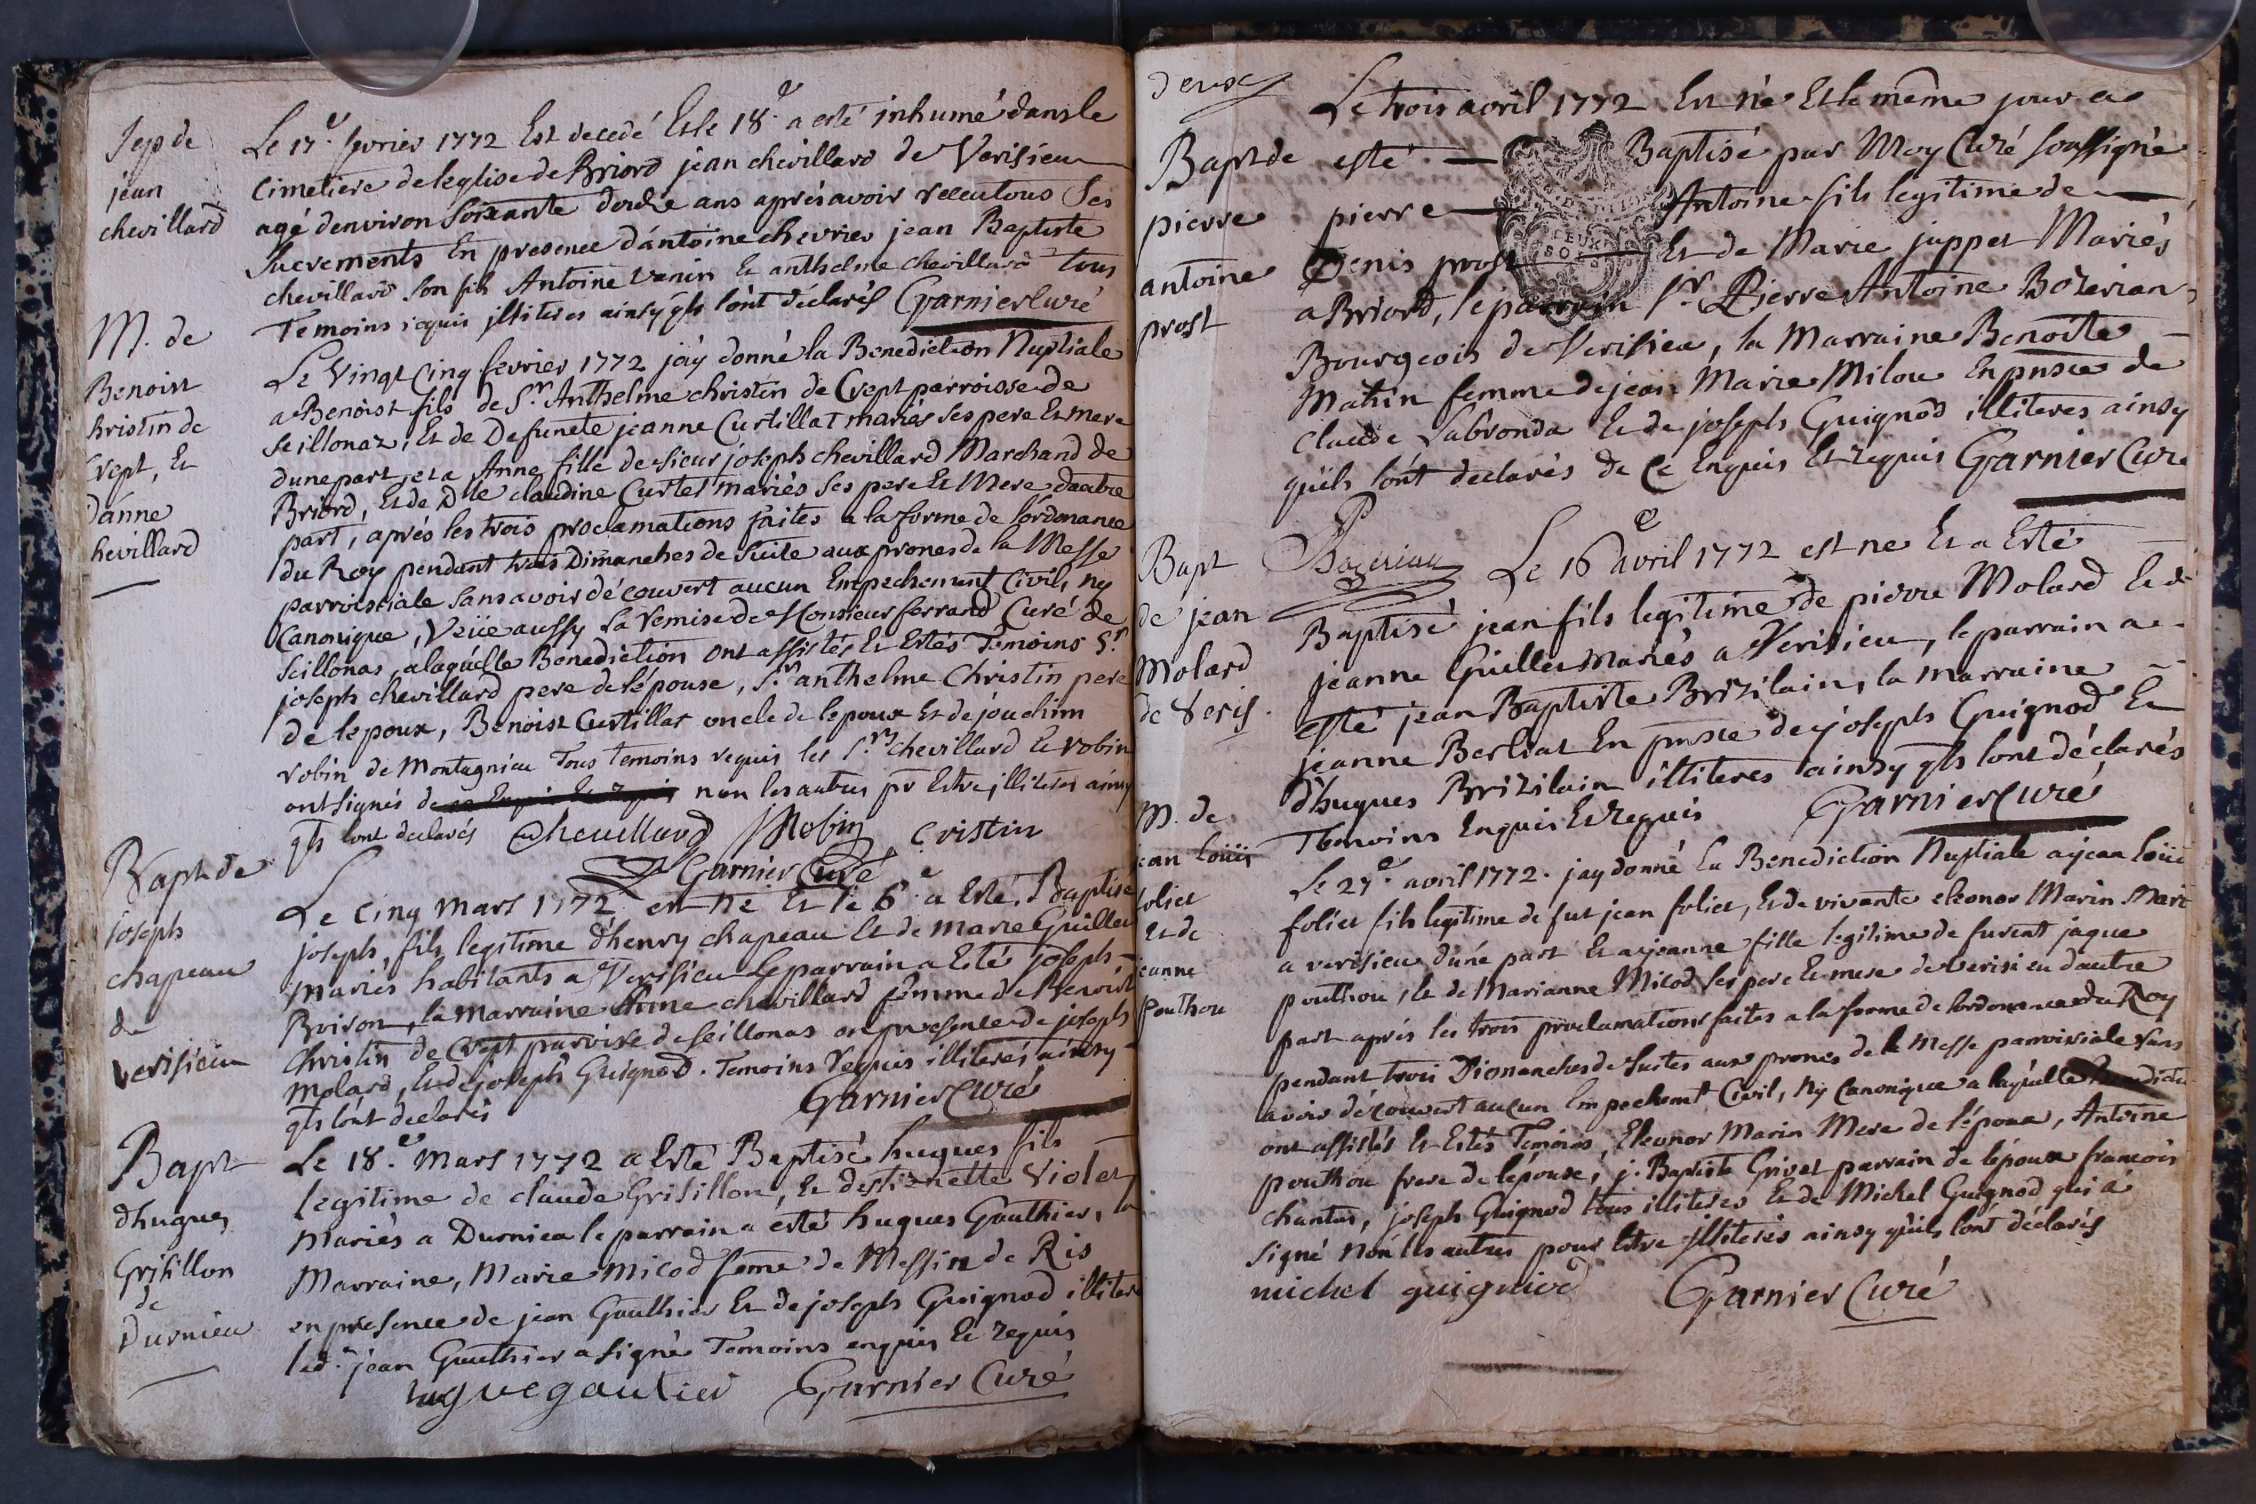 Sep de
jean
chevillard
Le 17.e fevrier 1772 Est decedé Et le 18.e a esté inhumé dans le
Cimetiere de leglise de Briord jean chevillard de Verisieu
agé denviron soixante douze ans aprés avoir receu tous Ses
Sacrements En presence d'antoine chevrier jean Baptiste
chevillard son fils Antoine vanin Et anthelme chevillard tous
Temoins requis illiteres ainsy qls lont déclarés Garnier Curé
M. de
Benoist
hristin de
Crept, Et
D'anne
hevillard
Le Vingt Cinq fevrier 1772 j'ay donné la Benediction Nuptiale
a Benoist fils de Sr. Anthelme christin de Crept parroisse de
Seillonaz, Et de Defunete jeanne Curtillat mariés ses pere Et mere
dune part, et a Anne fille de sieur joseph chevillard Marchand de
Briord, Et de Dlle claudine Curtet mariés ses pere Et Mere dautre
part, aprés les trois proclamations faites a la forme de l'ordonance
du Roy pendant trois Dimanches de suite aux prones de la Messe
parroissiale sans avoir découvert aucun Empechement Civil, ny
Canonique, Veüe aussy la remise de Monsieur ferrand Curé de
Seillonas, alaquelle Benediction ont assistés Et Estés Temoins Sr.
joseph chevillard pere de lépouse, Sr. anthelme Christin pere
de lepoux, Benoist Curtillat oncle de lepoux Et de jouachim
robin de Montagnieu Tous temoins requis les Srs chevillard Et robin
ont signés de ce Enquis Et Requis non les autres pr Estre illiteres ainsy
qls lont declarés Cheuillard JRobin cristin
Garnier Curé
Bapt de
joseph
chapeau
de
verisieu
Le Cinq mars 1772 est né Et le 6.e a Esté Baptisé
joseph, fils legitime d'henry chapeau Et de marie Guillet
mariés habitants a Verisieu Le parrain a Esté joseph
Boiron, la marraine Anne chevillard femme de Benoist
Christin de Crept parroisse de seillonas en presence de joseph
Molard, Et de joseph Guignod. Temoins Requis illiterés ainsy
qls lont declarés Garnier Curé
Bapt
dhugues
Grisillon
de
Durnieu
Le 18.e Mars 1772 a Esté Baptisé hugues fils
legitime de claude Grisillon, Et destienette Violet
Mariés a Durnieu le parrain a ésté hugues Gauthier, la
Marraine, Marie micod feme de Messin de Ris
en presence de jean Gauthier Et de joseph Guignod illitere
led.t jean Gauthier a signé Temoins enquis Et requis
hugue gautier Garnier Curé
Deux
Bapt de
pierre
antoine
prost
Le trois avril 1772 Est né Et le même jour a
esté Baptisé par Moy Curé soussigné
pierre Antoine fils legitime de
Denis prost Et de Marie juppet Mariés
DEUX
SOLS
a Briord, le parrain Sr. Pierre Antoine Bozerian
Bourgeois de Verisieu, la Marraine Benoite
Matin femme de jean Marie Milou En pnsce de
claude Labronda Et de joseph Guignod illiteres ainsy
quils lont declarés de Ce Enquis Et requis Garnier Curé
Bozerian
Bapt
de jean
Molard
de Veris.
Le 16.e avril 1772 est ne Et a Esté
Baptisé jean fils legitime de pierre Molard Et de
jeanne Guillet mariés a Verisieu, le parrain a
esté jean Baptiste Brizilain, la marraine
jeanne Berliat En pnsce de joseph Guignod Et
d'hugues Brizilain illiteres ainsy qls lont déclarés
Temoins Enquis Et requis Garnier Curé
M. de
jean loüis
foliet
Et de
jeanne
pouthou
Le 27.e avril 1772. jay donné la Benediction Nuptiale a jean loüis
foliet fils legitime de fut jean foliet, Et de vivante eleonor Marin Mari
a verisieu d'une part Et a jeanne fille legitime de furent jaque
pouthou, Et de Marianne Micod ses pere Et mere de verisieu dautre
part aprés les trois proclamations faites a la forme de lordonance du Roy
pendant trois Dimanches de suites aux prones de la Messe parroissiale sans
avoir découvert aucun Empechemt Civil, Ny Canonique a laquelle Benedicti
ont assistés Et Estés Temoins, Eleonor Marin Mere de l'époux, Antoine
pouthou frere de lépouse, j. Baptiste Grivet parrain de lépoux francois
chantus, joseph Guignod tous illiteres Et de Michel Guignod qui a
signé non les autres pour Estre illiterés ainsy quils lont déclarés
michel guignod Garnier Curé